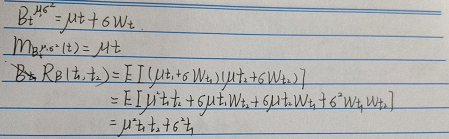 B_t^{μ,σ²} = μt + σW_t
m_{B_t^{μ,σ²}}(t) = μt
R_B(t₁,t₂) = E[(μt₁+σW_{t₁})(μt₂+σW_{t₂})]
= E[μ²t₁t₂ + σμt₁W_{t₂} + σμt₂W_{t₁} + σ²W_{t₁}W_{t₂}]
= μ²t₁t₂ + σ²t₁